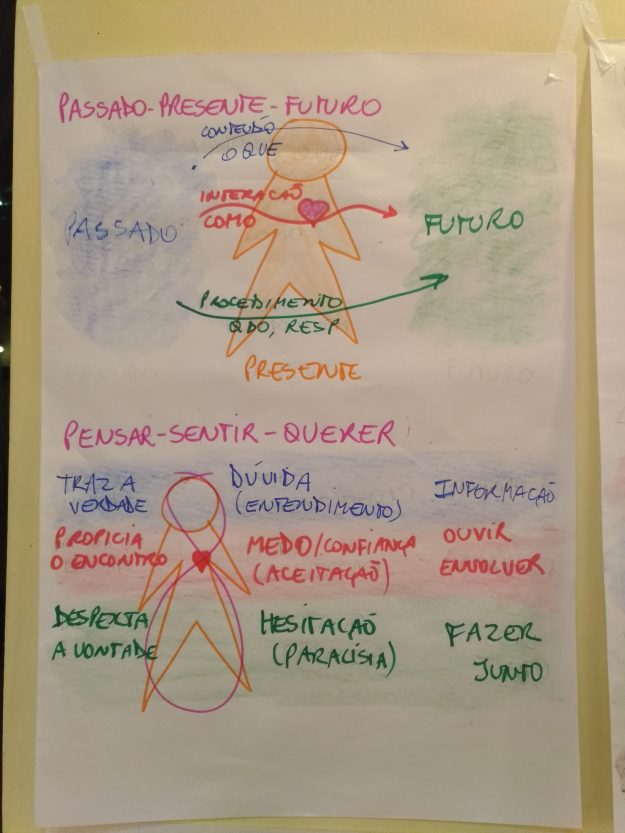 PASSADO-PRESENTE-FUTURO
CONTEÚDO
O QUE
INTERAÇÃO
COMO
PASSADO
FUTURO
PROCEDIMENTO
QDO, RESP
PRESENTE
PASSADO
FUTURO
PENSAR-SENTIR-QUERER
TRAZ A
VERDADE
DÚVIDA
(ENTENDIMENTO)
INFORMAÇÃO
PROPICIA
O ENCONTRO
MEDO/CONFIANÇA
(ACEITAÇÃO)
OUVIR
ENVOLVER
DESPERTA
A VONTADE
HESITAÇÃO
(PARALISIA)
FAZER
JUNTO